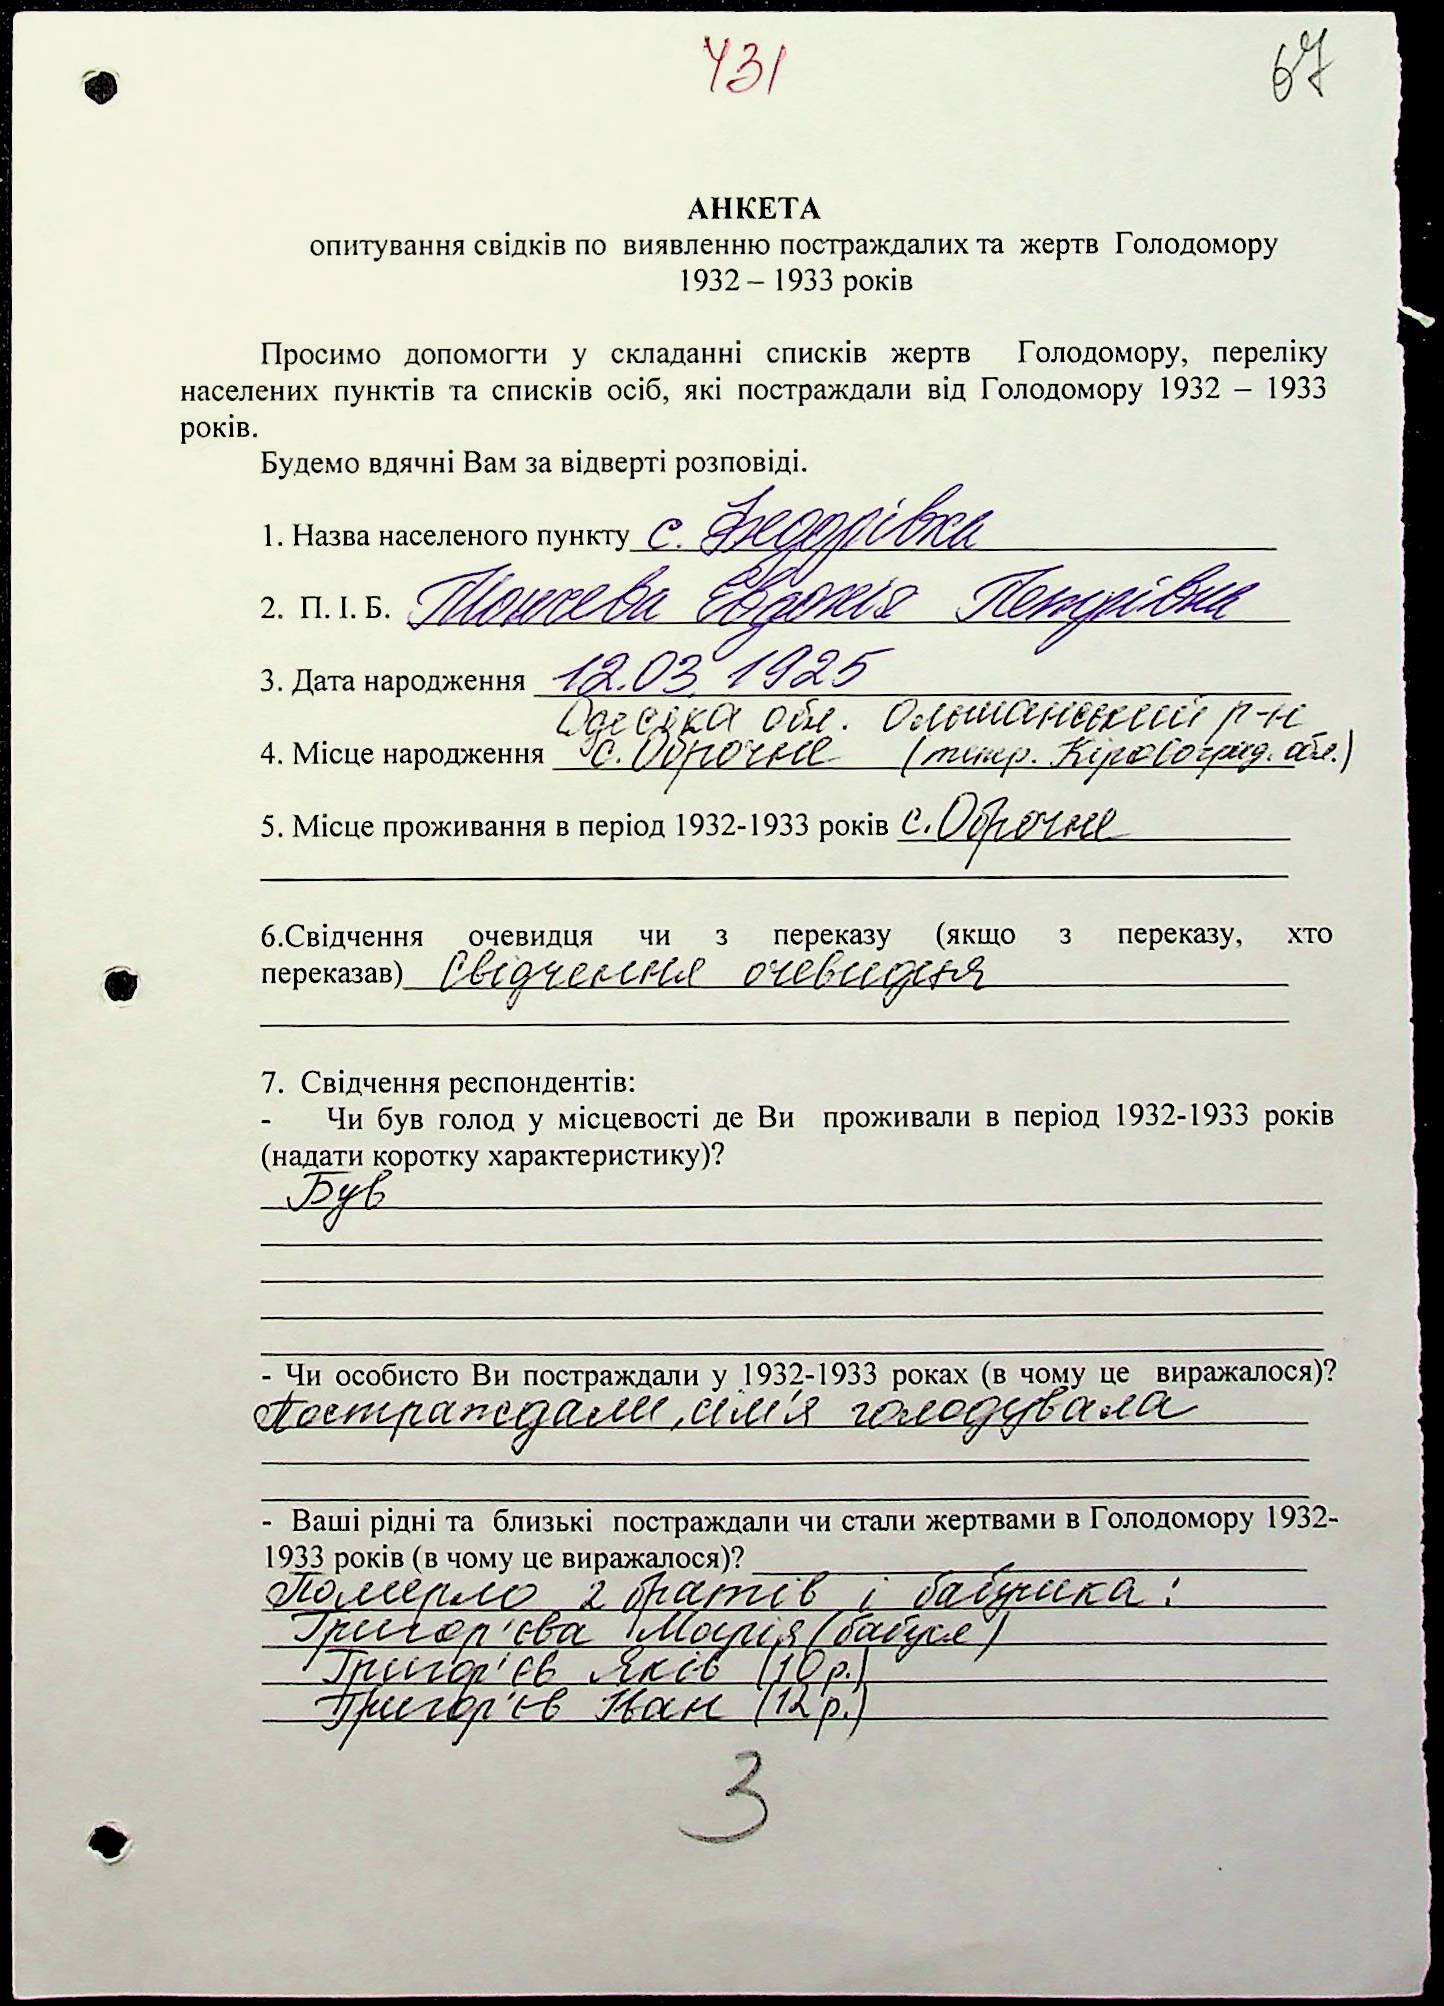 431
67
АНКЕТА
опитування свідків по виявленню постраждалих та жертв Голодомору
1932 – 1933 років
Просимо допомогти у складанні списків жертв Голодомору, переліку
населених пунктів та списків осіб, які постраждали від Голодомору 1932 – 1933
років.
Будемо вдячні Вам за відверті розповіді.
1. Назва населеного пункту с. Федорівка
2. П. І. Б. Євдокія Петрівна
3. Дата народження 12.03 1925
Одеська обл. Ольшанський р-н
4. Місце народження с. Оброчне (тепер. Кіровоград. обл.)
5. Місце проживання в період 1932-1933 років с. Оброчне
6.Свідчення очевидця чи з переказу (якщо з переказу, хто
переказав) Свідчення очевидця
7. Свідчення респондентів:
- Чи був голод у місцевості де Ви проживали в період 1932-1933 років
(надати коротку характеристику)?
Був
- Чи особисто Ви постраждали у 1932-1933 роках (в чому це виражалося)?
Постраждали, сім'я голодувала
- Ваші рідні та близькі постраждали чи стали жертвами в Голодомору 1932-
1933 років (в чому це виражалося)?
Померло 2 братів і бабушка:
Григор'єва Марія (бабуся)
Григор'єв Яків (10 р.)
Григор'єв Іван (12 р.)
3